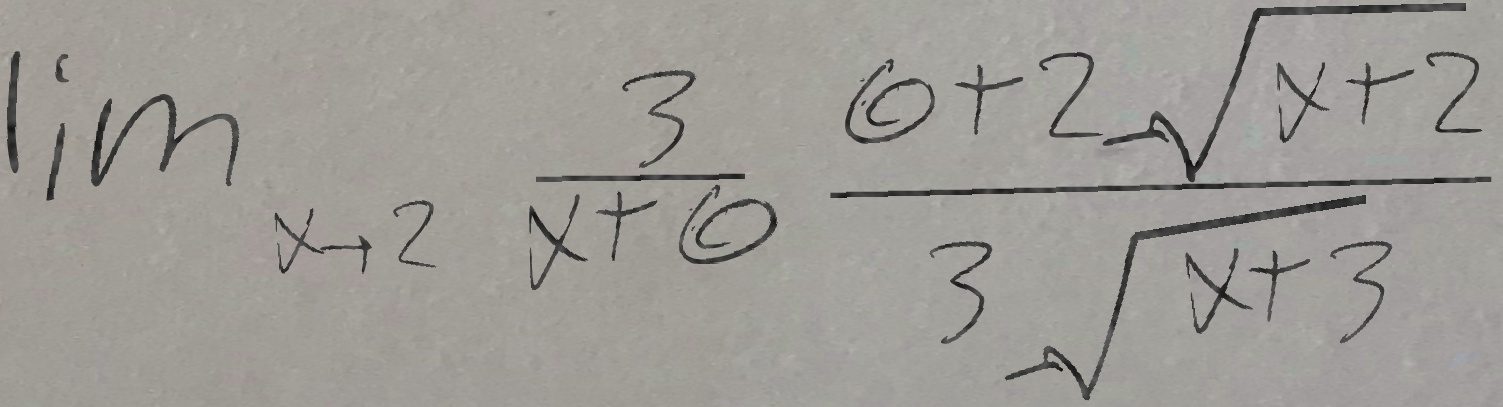 lim x→2 3/(x+6) (6+2√(x+2))/(3√(x+3))